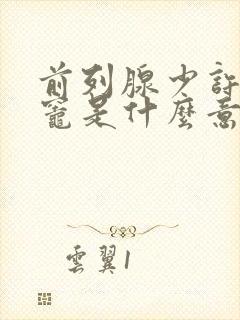 前列腺少許
竈是什麼意
雲翼1